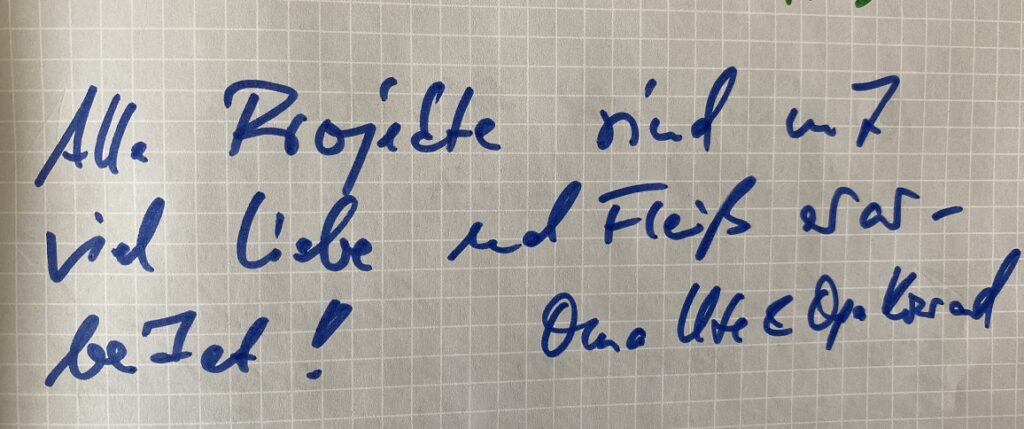 Alle Projekte sind mit
viel Liebe und Fleiß erar-
beitet!
Oma Ute & Opa Konrad